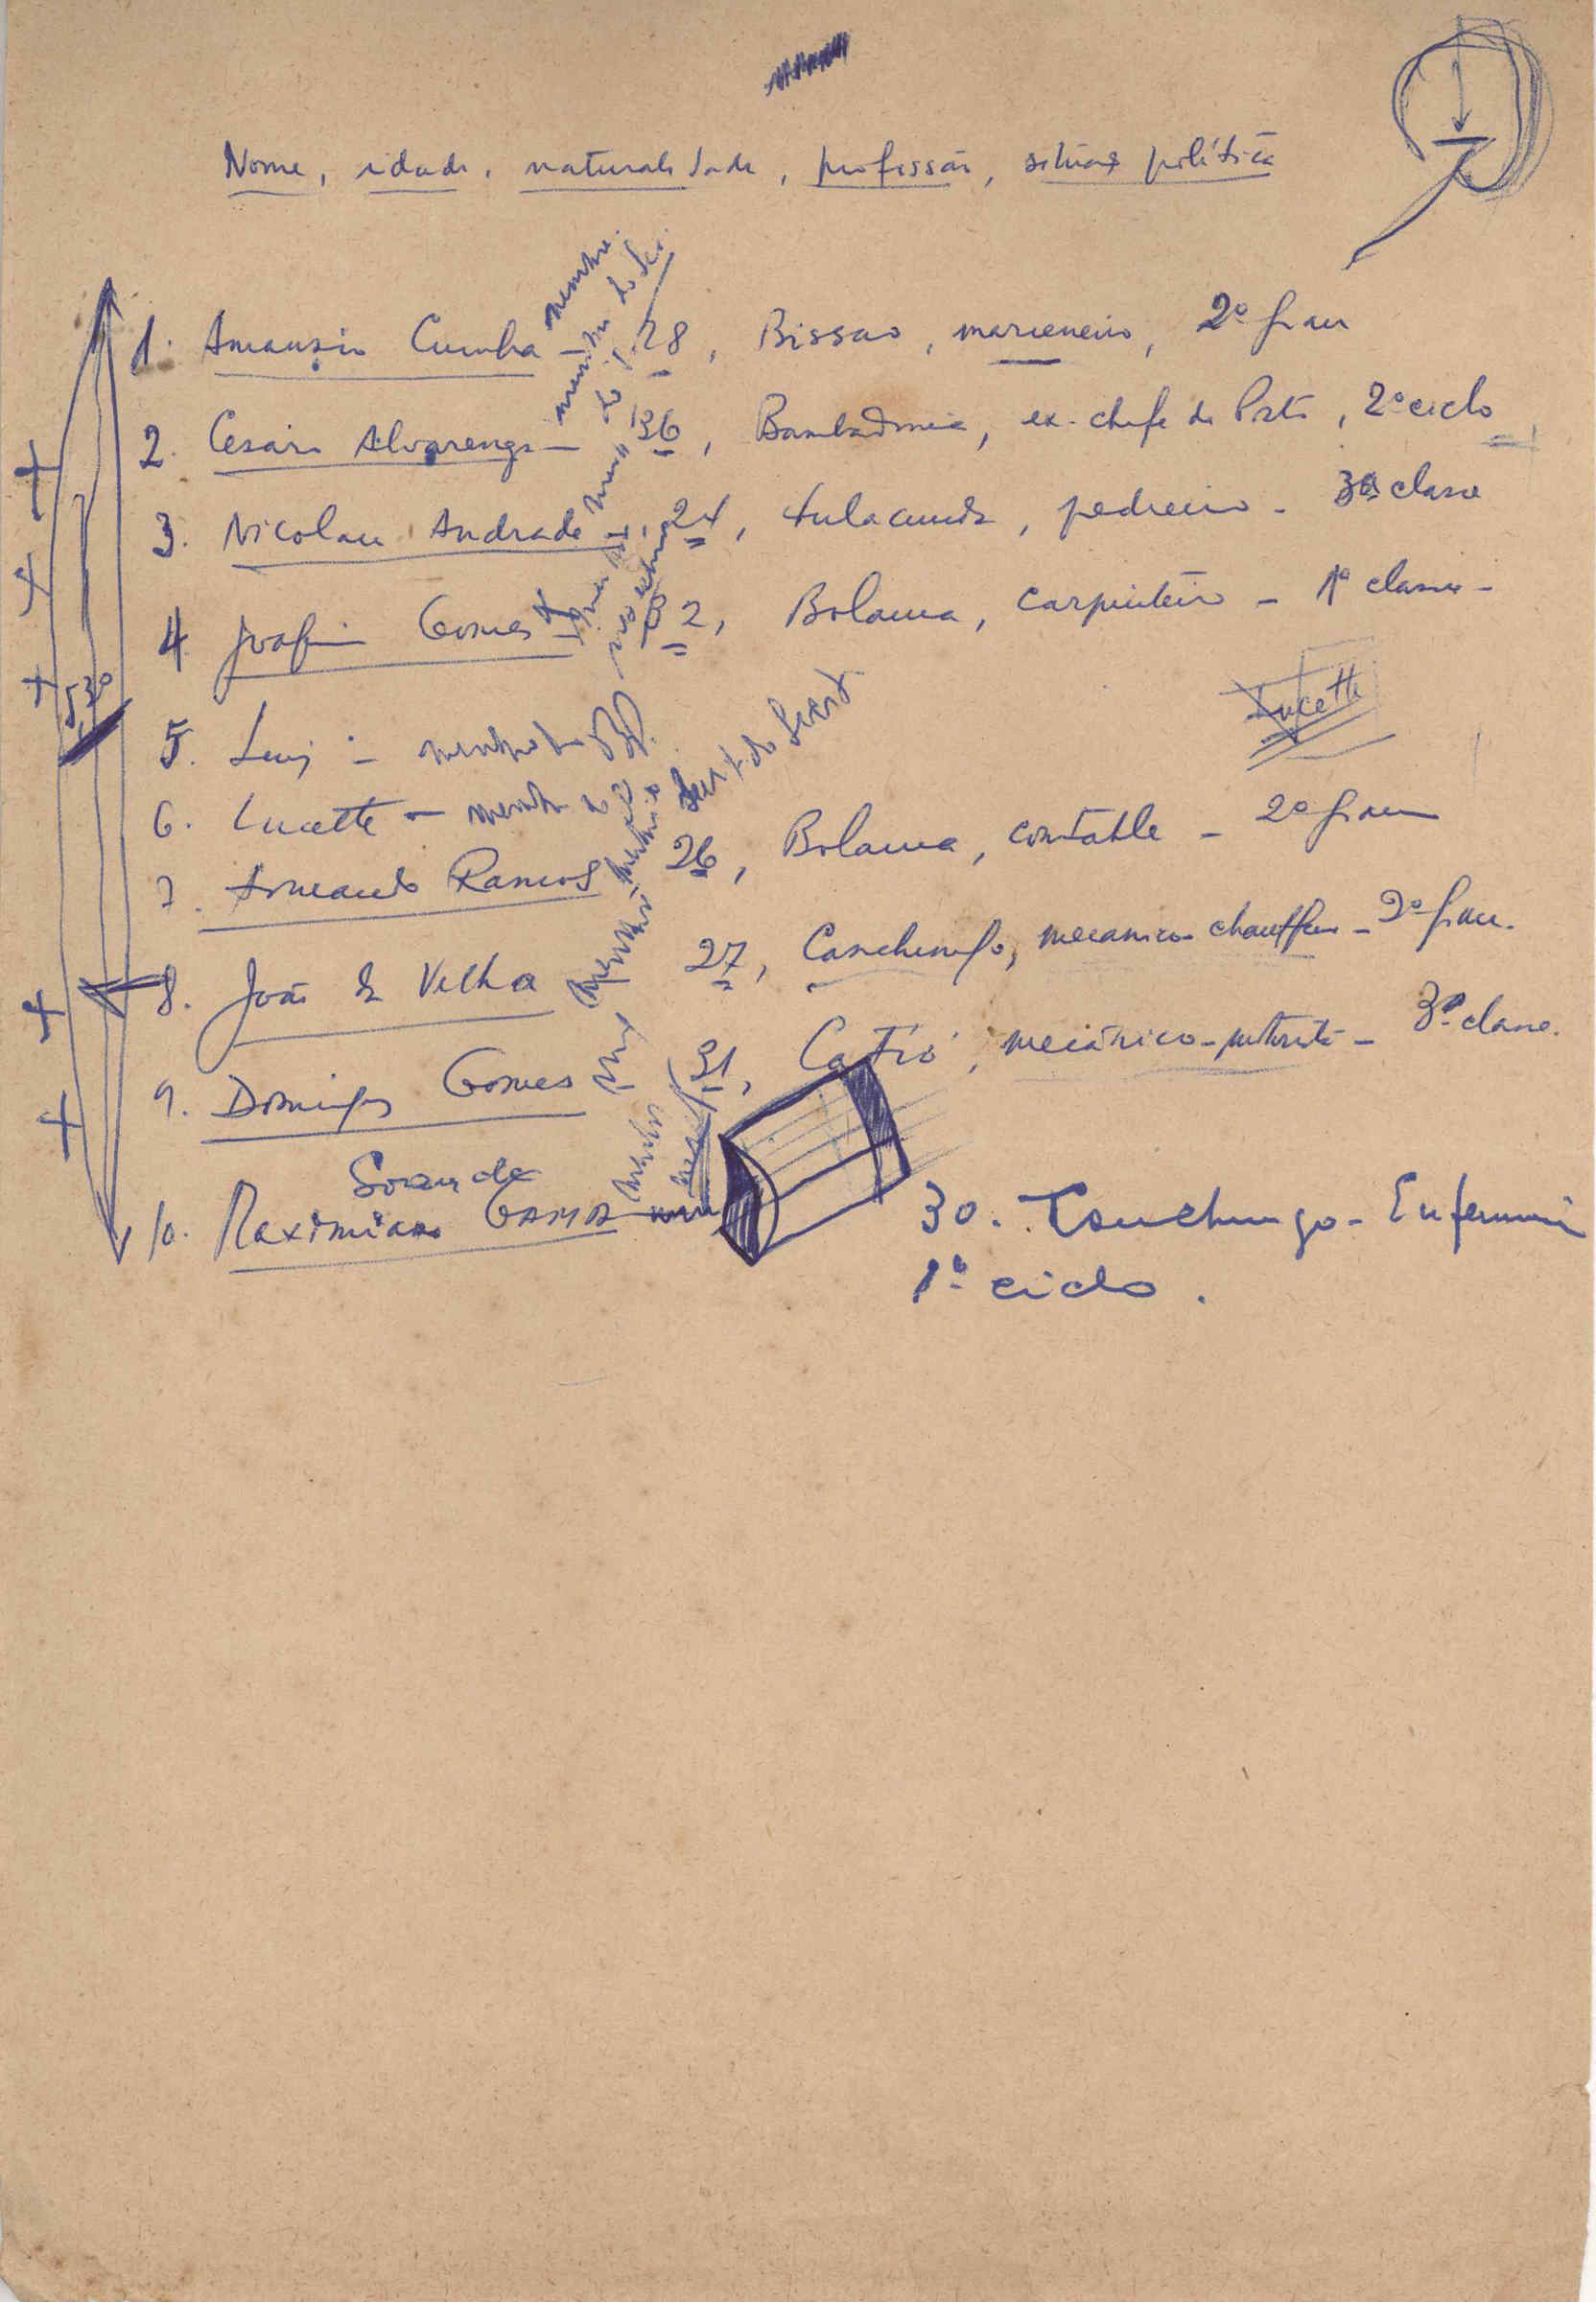 Nome, idade, naturalidade, profissão, situação política
1. Amansio Cunha - 28, Bissao, marceneiro, 2º grau
2. Cesario Alvarenga - 36, Bambadinca, ex-chefe de Posto, 2º ciclo
3. Nicolau Andrade - 24, Fulacunda, pedreiro - 3ª classe
4 Joaquim Gomes - 32, Bolama, carpinteiro - 1ª classe -
5. Luiz - membro do
Lucette
6. Lucette - membro
7. Armando Ramos 26, Bolama, contable - 2º grau
8. João da Velha 27, Canchungo, mecanico-chauffeur - 2º grau.
9. Domingos Gomes 31, Catió, mecânico-motorista - 3ª classe.
10. Maximiano Gama
30. Canchungo - Enfermeiro
1º ciclo.
530
membro
membro do